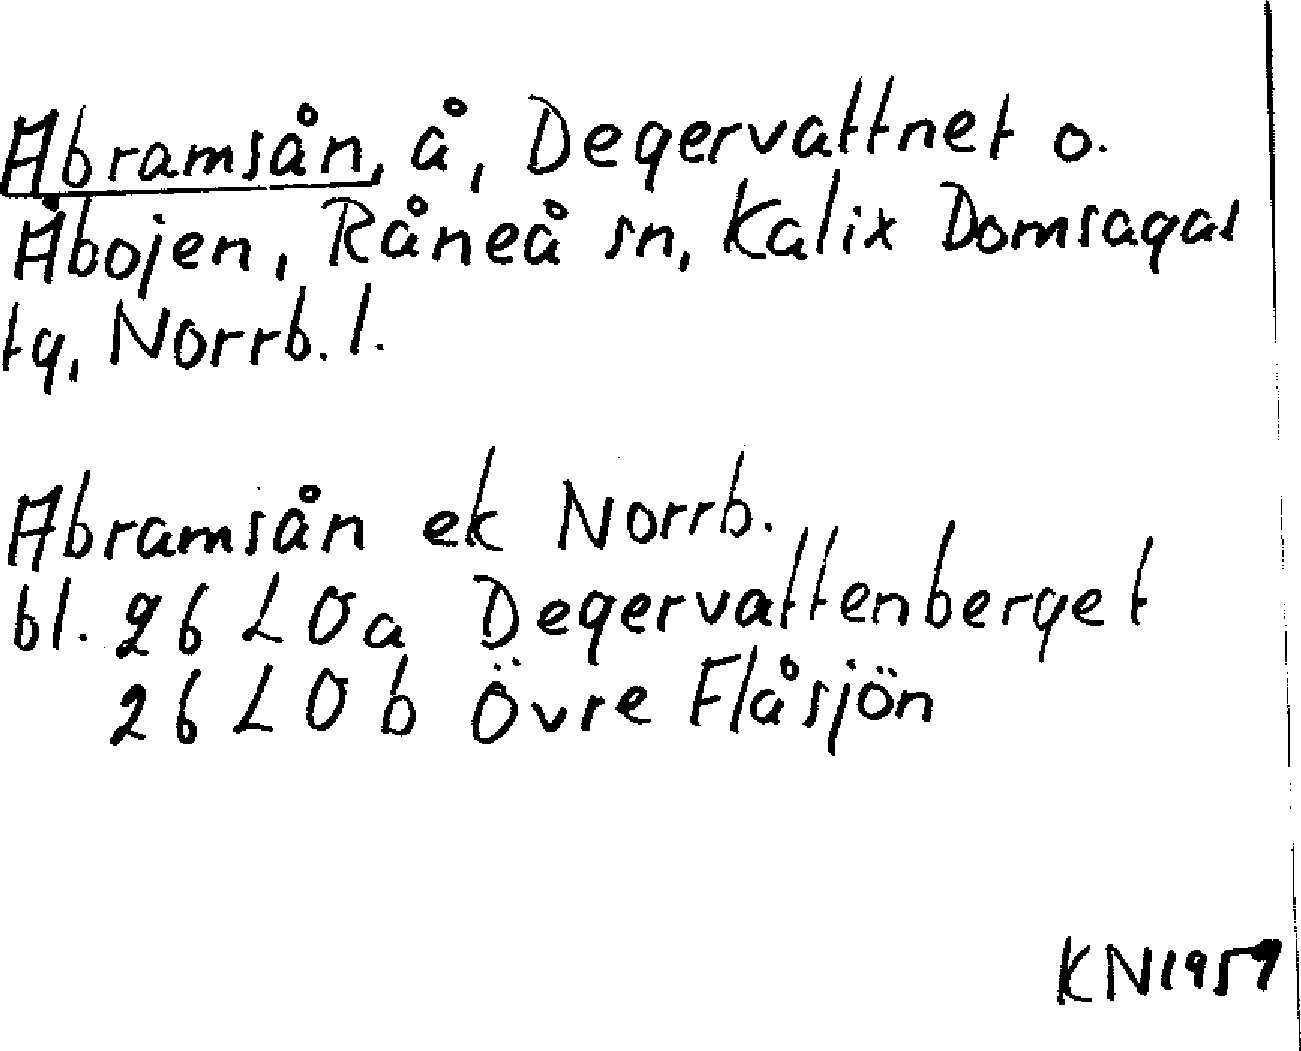 Abramsån, å, Degervattnet o.
Åbojen, Råneå sn, Kalix Domsagas
tg, Norrb. l.
Abramsån ek Norrb.
bl. 26 L 0 a Degervattenberget
26 L 0 b Övre Flåsjön
KN 1957